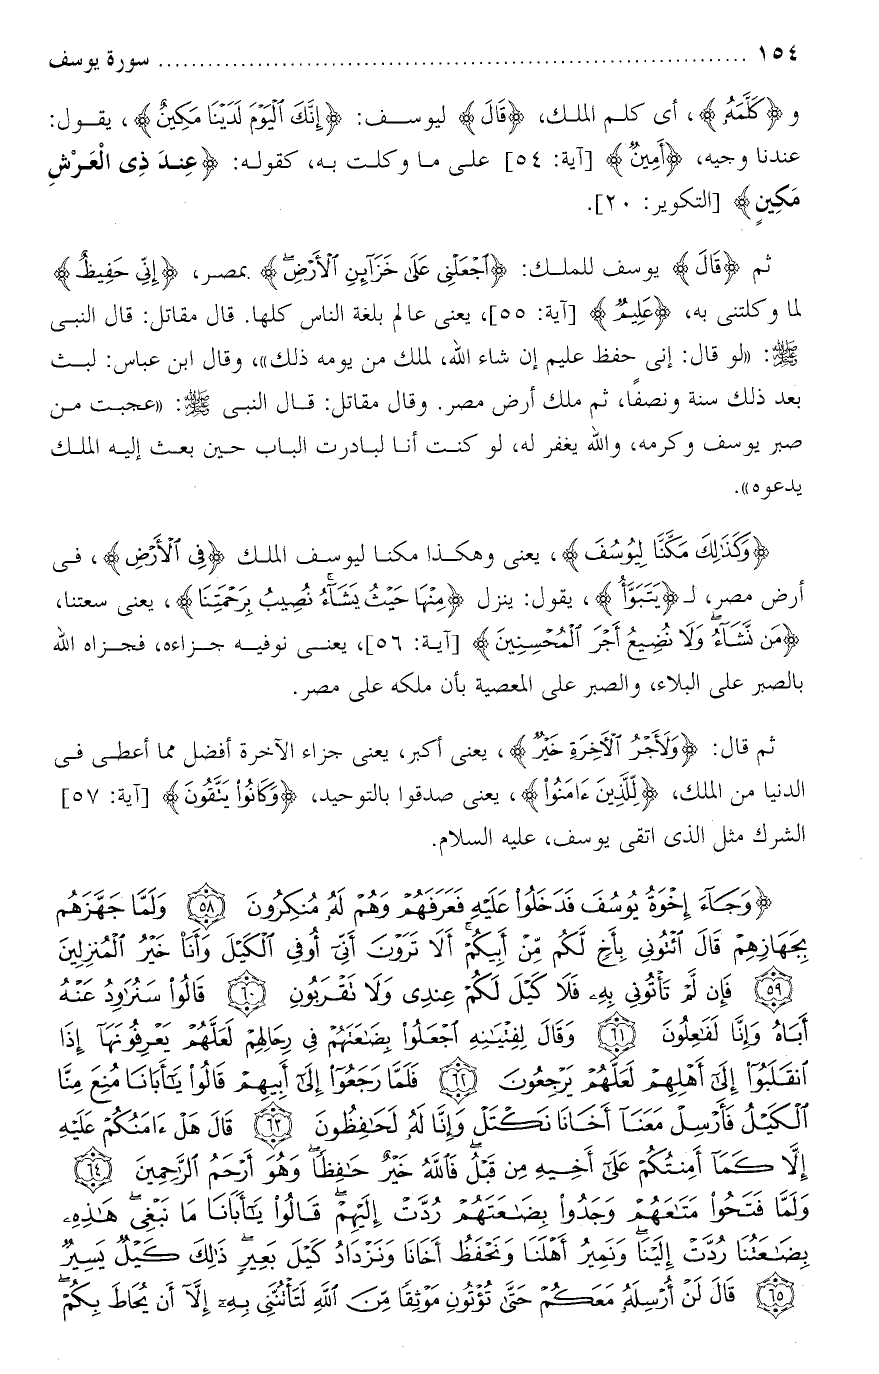 ١٥٤ ............................................................ سورة يوسف
و ﴿كَلَّمَهُ﴾، أى كلم الملك، ﴿قَالَ﴾ ليوسف: ﴿إِنَّكَ ٱلْيَوْمَ لَدَيْنَا مَكِينٌ﴾، يقول:
عندنا وجيه، ﴿أَمِينٌ﴾ [آية: ٥٤] على ما وكلت به، كقوله: ﴿عِندَ ذِى الْعَرْشِ
مَكِينٍ﴾ [التكوير: ٢٠].
ثم ﴿قَالَ﴾ يوسف للملك: ﴿ٱجْعَلْنِى عَلَىٰ خَزَآئِنِ ٱلْأَرْضِۖ﴾ بمصر، ﴿إِنِّى حَفِيظٌ﴾
لما وكلتنى به، ﴿عَلِيمٌ﴾ [آية: ٥٥]، يعنى عالم بلغة الناس كلها. قال مقاتل: قال النبى
ﷺ: «لو قال: إنى حفظ عليم إن شاء الله، لملك من يومه ذلك»، وقال ابن عباس: لبث
بعد ذلك سنة ونصفًا، ثم ملك أرض مصر. وقال مقاتل: قال النبى ﷺ: «عجبت من
صبر يوسف وكرمه، والله يغفر له، لو كنت أنا لبادرت الباب حين بعث إليه الملك
يدعوه».
﴿وَكَذَٰلِكَ مَكَّنَّا لِيُوسُفَ﴾، يعنى وهكذا مكنا ليوسف الملك ﴿فِى ٱلْأَرْضِ﴾، فى
أرض مصر، لـ﴿يَتَبَوَّأُ﴾، يقول: ينزل ﴿مِنْهَا حَيْثُ يَشَآءُۚ نُصِيبُ بِرَحْمَتِنَا﴾، يعنى سعتنا،
﴿مَن نَّشَآءُۖ وَلَا نُضِيعُ أَجْرَ ٱلْمُحْسِنِينَ﴾ [آية: ٥٦]، يعنى نوفيه جزاءه، فجزاه الله
بالصبر على البلاء، والصبر على المعصية بأن ملكه على مصر.
ثم قال: ﴿وَلَأَجْرُ ٱلْآخِرَةِ خَيْرٌ﴾، يعنى أكبر، يعنى جزاء الآخرة أفضل مما أعطى فى
الدنيا من الملك، ﴿لِّلَّذِينَ ءَامَنُوا۟﴾، يعنى صدقوا بالتوحيد، ﴿وَكَانُوا۟ يَتَّقُونَ﴾ [آية: ٥٧]
الشرك مثل الذى اتقى يوسف، عليه السلام.
﴿وَجَآءَ إِخْوَةُ يُوسُفَ فَدَخَلُوا۟ عَلَيْهِ فَعَرَفَهُمْ وَهُمْ لَهُۥ مُنكِرُونَ ٥٨ وَلَمَّا جَهَّزَهُم
بِجَهَازِهِمْ قَالَ ٱئْتُونِى بِأَخٍ لَّكُم مِّنْ أَبِيكُمْۚ أَلَا تَرَوْنَ أَنِّىٓ أُوفِى ٱلْكَيْلَ وَأَنَا۠ خَيْرُ ٱلْمُنزِلِينَ
٥٩ فَإِن لَّمْ تَأْتُونِى بِهِۦ فَلَا كَيْلَ لَكُمْ عِندِى وَلَا تَقْرَبُونِ ٦٠ قَالُوا۟ سَنُرَٰوِدُ عَنْهُ
أَبَاهُ وَإِنَّا لَفَٰعِلُونَ ٦١ وَقَالَ لِفِتْيَٰنِهِ ٱجْعَلُوا۟ بِضَٰعَتَهُمْ فِى رِحَالِهِمْ لَعَلَّهُمْ يَعْرِفُونَهَآ إِذَا
ٱنقَلَبُوٓا۟ إِلَىٰٓ أَهْلِهِمْ لَعَلَّهُمْ يَرْجِعُونَ ٦٢ فَلَمَّا رَجَعُوٓا۟ إِلَىٰٓ أَبِيهِمْ قَالُوا۟ يَٰٓأَبَانَا مُنِعَ مِنَّا
ٱلْكَيْلُ فَأَرْسِلْ مَعَنَآ أَخَانَا نَكْتَلْ وَإِنَّا لَهُۥ لَحَٰفِظُونَ ٦٣ قَالَ هَلْ ءَامَنُكُمْ عَلَيْهِ
إِلَّا كَمَآ أَمِنتُكُمْ عَلَىٰٓ أَخِيهِ مِن قَبْلُۖ فَٱللَّهُ خَيْرٌ حَٰفِظًاۖ وَهُوَ أَرْحَمُ ٱلرَّٰحِمِينَ ٦٤
وَلَمَّا فَتَحُوا۟ مَتَٰعَهُمْ وَجَدُوا۟ بِضَٰعَتَهُمْ رُدَّتْ إِلَيْهِمْۖ قَالُوا۟ يَٰٓأَبَانَا مَا نَبْغِىۖ هَٰذِهِۦ
بِضَٰعَتُنَا رُدَّتْ إِلَيْنَاۖ وَنَمِيرُ أَهْلَنَا وَنَحْفَظُ أَخَانَا وَنَزْدَادُ كَيْلَ بَعِيرٍۖ ذَٰلِكَ كَيْلٌ يَسِيرٌ
٦٥ قَالَ لَنْ أُرْسِلَهُۥ مَعَكُمْ حَتَّىٰ تُؤْتُونِ مَوْثِقًا مِّنَ ٱللَّهِ لَتَأْتُنَّنِى بِهِۦٓ إِلَّآ أَن يُحَاطَ بِكُمْۖ